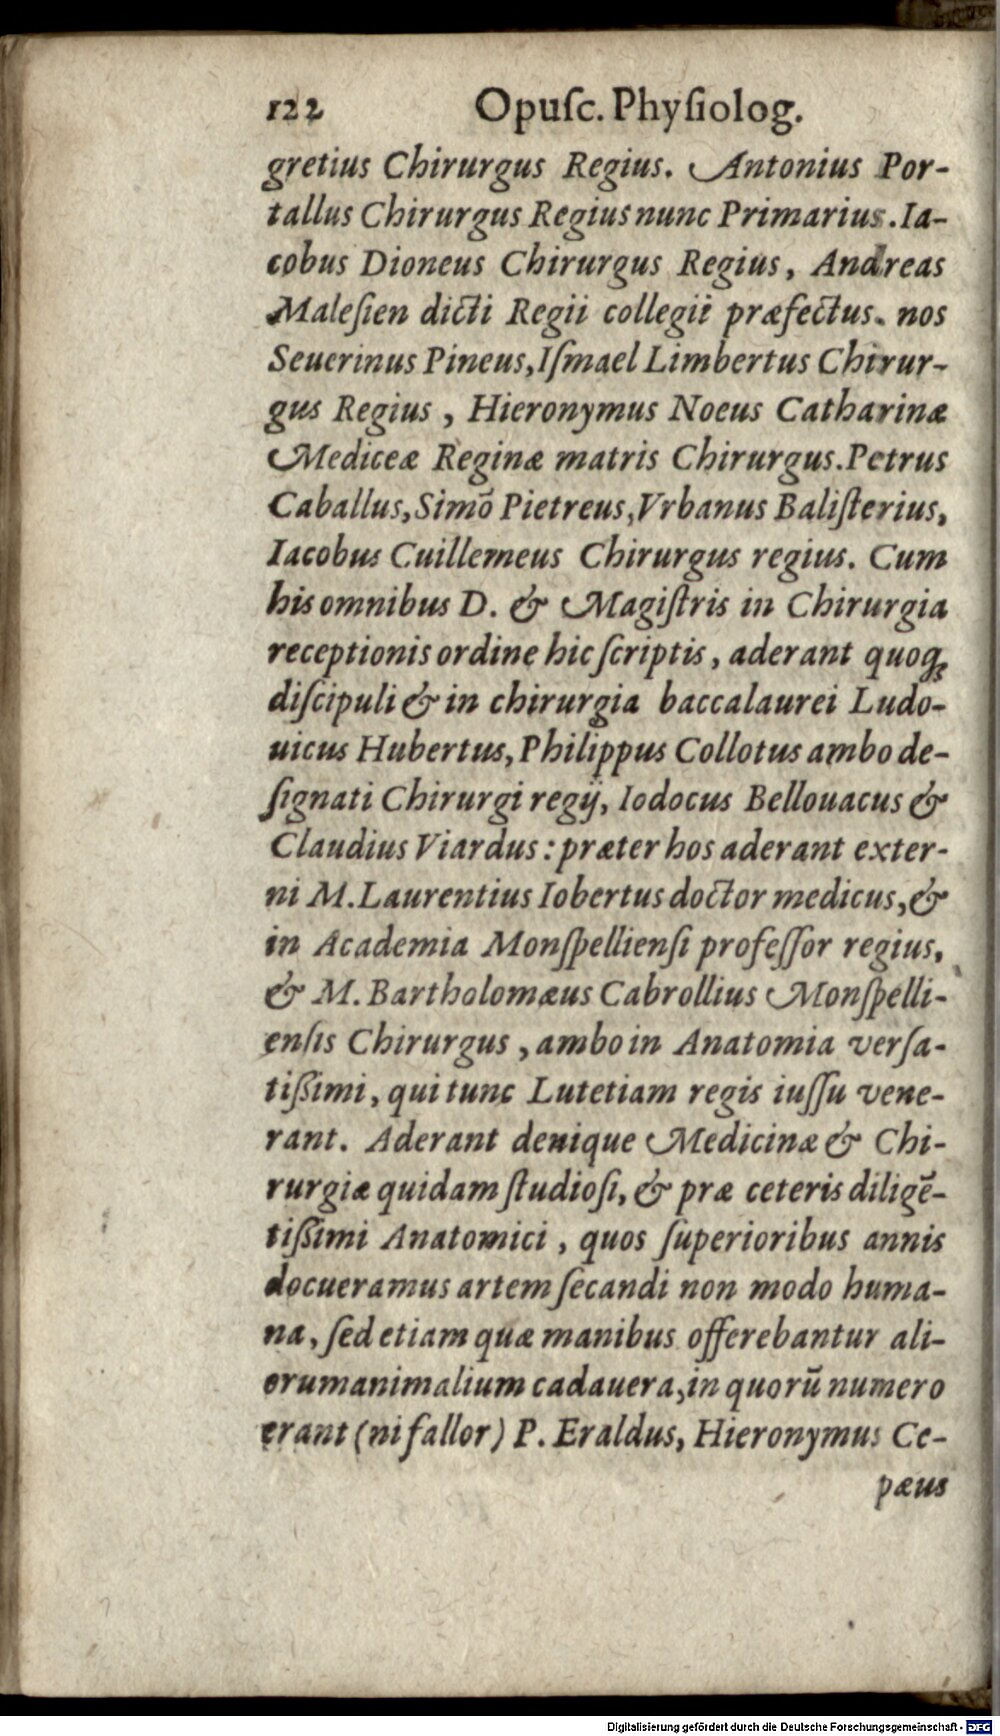 122 Opuſc. Phyſiolog.
gretius Chirurgus Regius. Antonius Por-
tallus Chirurgus Regius nunc Primarius. Ia-
cobus Dioneus Chirurgus Regius, Andreas
Maleſien dicti Regii collegii præfectus. nos
Seuerinus Pineus, Iſmael Limbertus Chirur-
gus Regius, Hieronymus Noeus Catharinæ
Mediceæ Reginæ matris Chirurgus. Petrus
Caballus, Simō Pietreus, Vrbanus Baliſterius,
Iacobus Cuillemeus Chirurgus regius. Cum
his omnibus D. & Magiſtris in Chirurgia
receptionis ordine hic ſcriptis, aderant quoq̨
diſcipuli & in chirurgia baccalaurei Ludo-
uicus Hubertus, Philippus Collotus ambo de-
ſignati Chirurgi regij, Iodocus Bellouacus &
Claudius Viardus: præter hos aderant exter-
ni M. Laurentius Iobertus doctor medicus, &
in Academia Monſpellienſi profeſſor regius,
& M. Bartholomæus Cabrollius Monſpelli-
enſis Chirurgus, ambo in Anatomia verſa-
tißimi, qui tunc Lutetiam regis iuſſu vene-
rant. Aderant denique Medicinæ & Chi-
rurgiæ quidam ſtudioſi, & præ ceteris diligē-
tißimi Anatomici, quos ſuperioribus annis
docueramus artem ſecandi non modo huma-
na, ſed etiam quæ manibus offerebantur ali-
orum animalium cadauera, in quorū numero
erant (ni fallor) P. Eraldus, Hieronymus Ce-
pæus
Digitalisierung gefördert durch die Deutsche Forschungsgemeinschaft - DFG